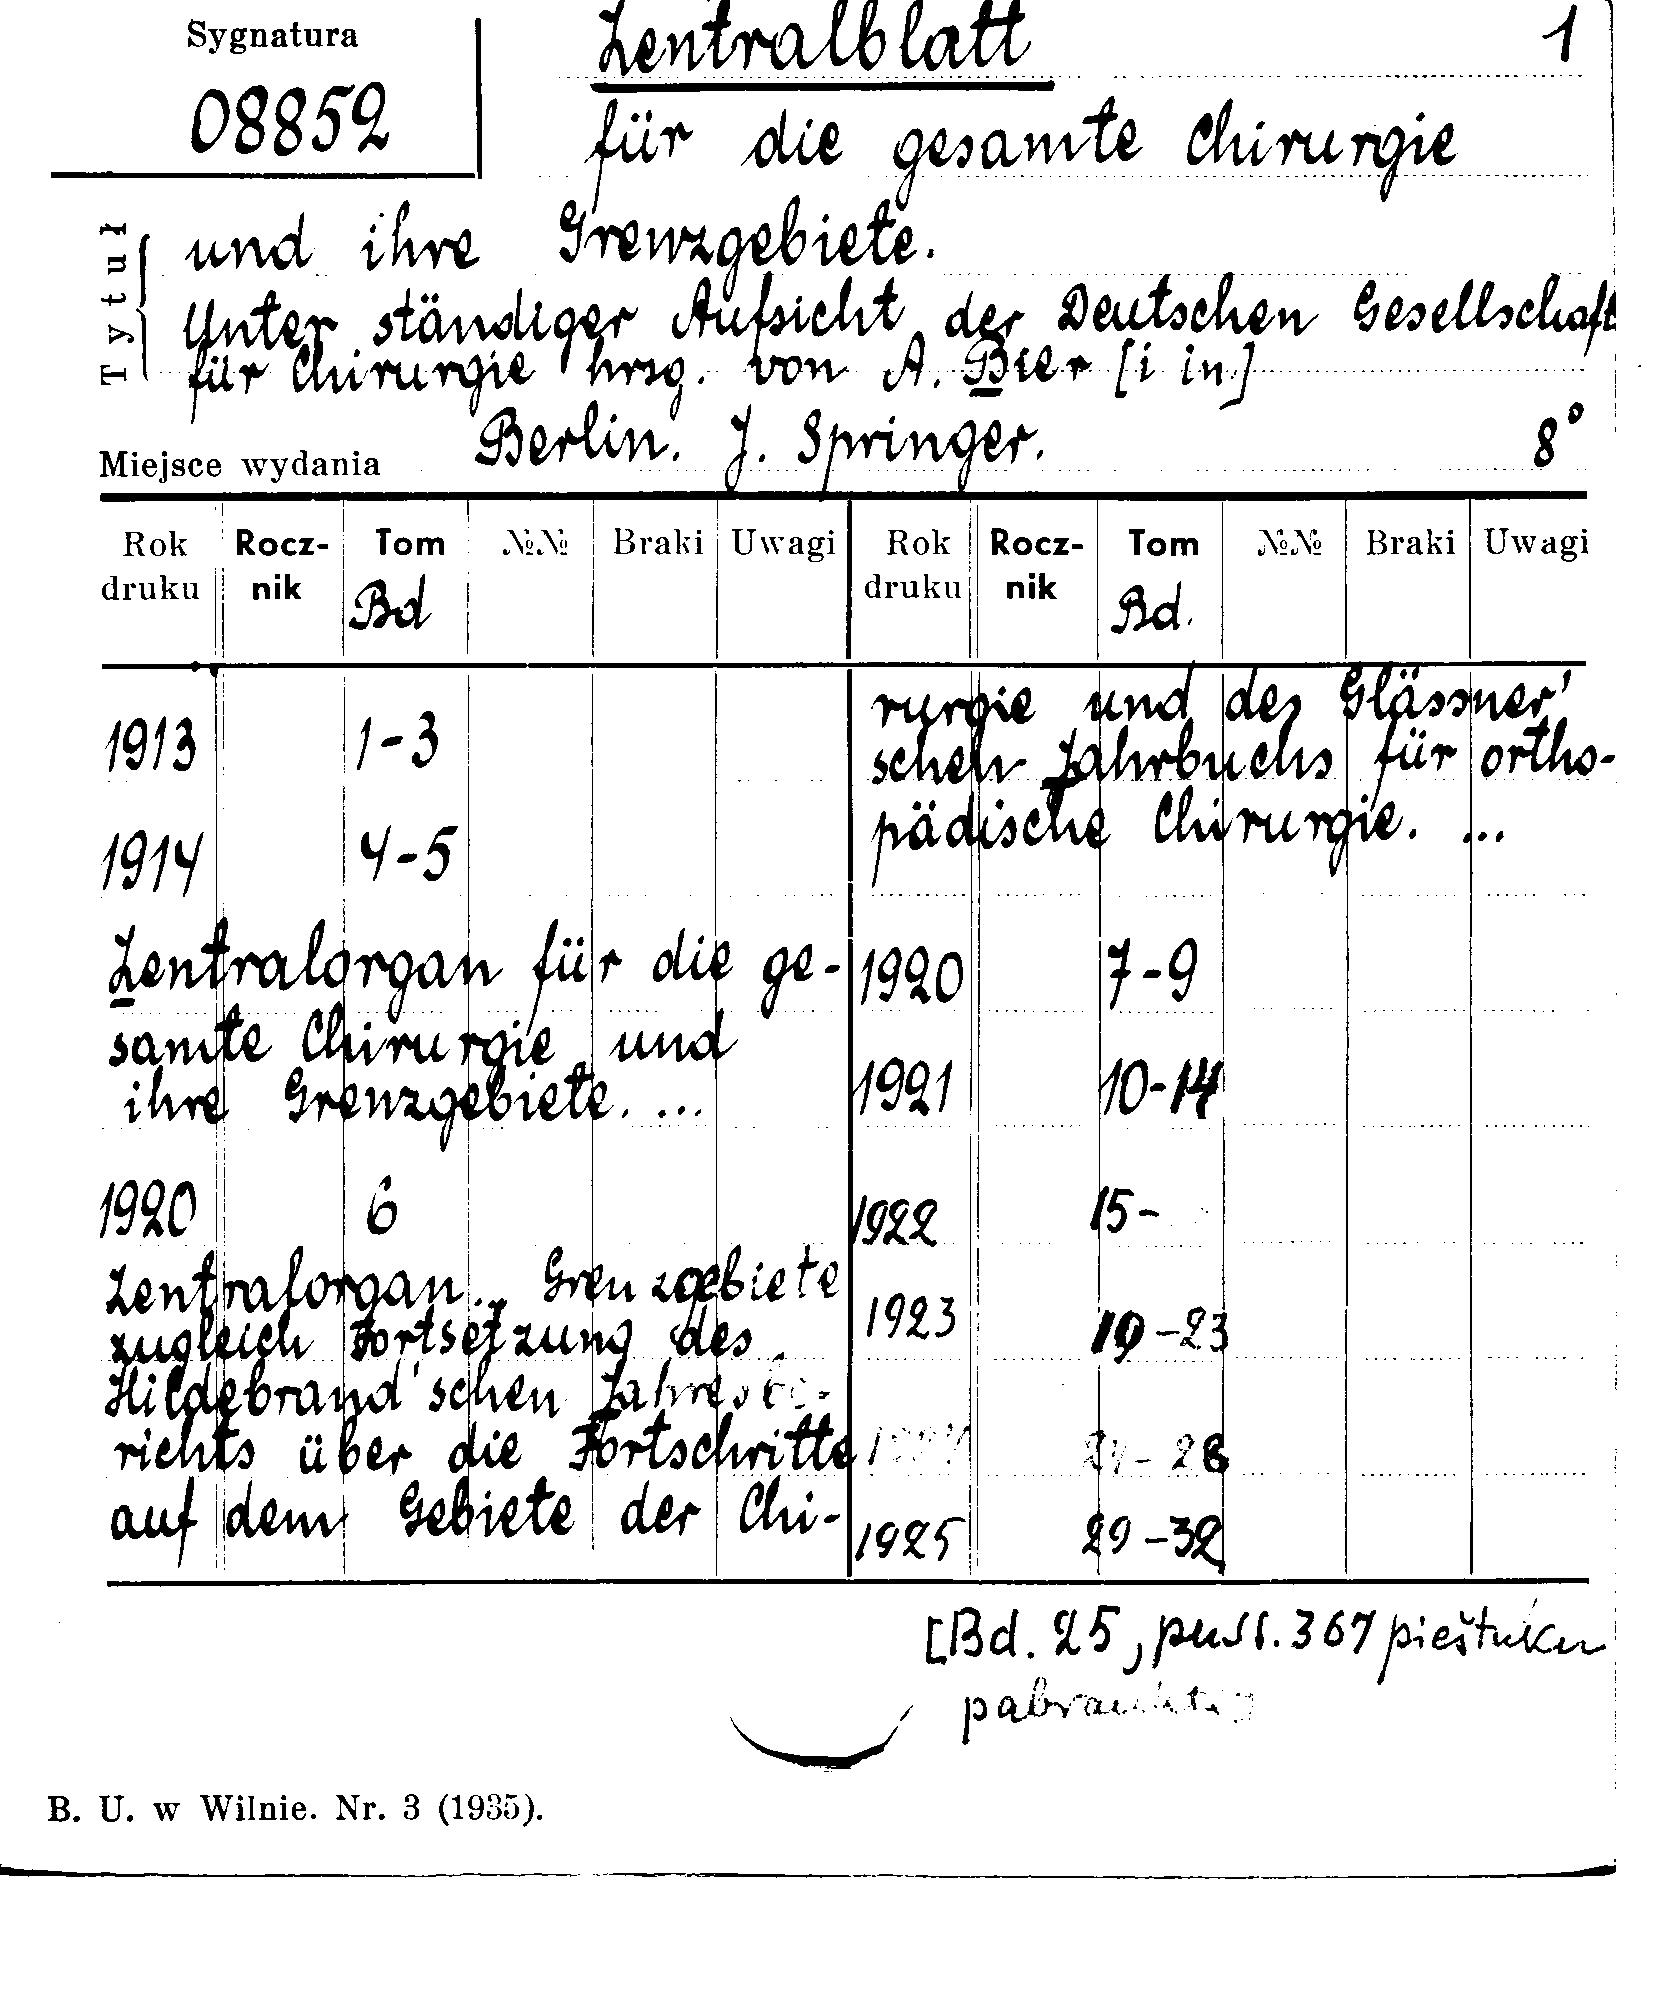 Sygnatura
08852
Zentralblatt
1
für die gesamte Chirurgie
und ihre Grenzgebiete.
Unter ständiger Aufsicht der Deutschen Gesellschaft
für Chirurgie hrsg. von A. Bier [i in]
Tytuł
Miejsce wydania Berlin. J. Springer. 8°
Rok druku Rocznik Tom Bd №№ Braki Uwagi
1913 1-3
1914 4-5
Zentralorgan für die ge-
samte Chirurgie und
ihre Grenzgebiete. ...
1920 6
Zentralorgan... Grenzgebiete
zugleich Fortsetzung des
Hildebrand'schen Jahresbe-
richts über die Fortschritte
auf dem Gebiete der Chi-
Rok druku Rocz-nik Tom Bd. №№ Braki Uwagi
rurgie und des Glässner'
schen Jahrbuchs für ortho-
pädische Chirurgie. ...
1920 7-9
1921 10-14
1922 15-
1923 19-23
24-28
1925 29-32
[Bd. 25, pusl. 367 pieštuku
B. U. w Wilnie. Nr. 3 (1935).